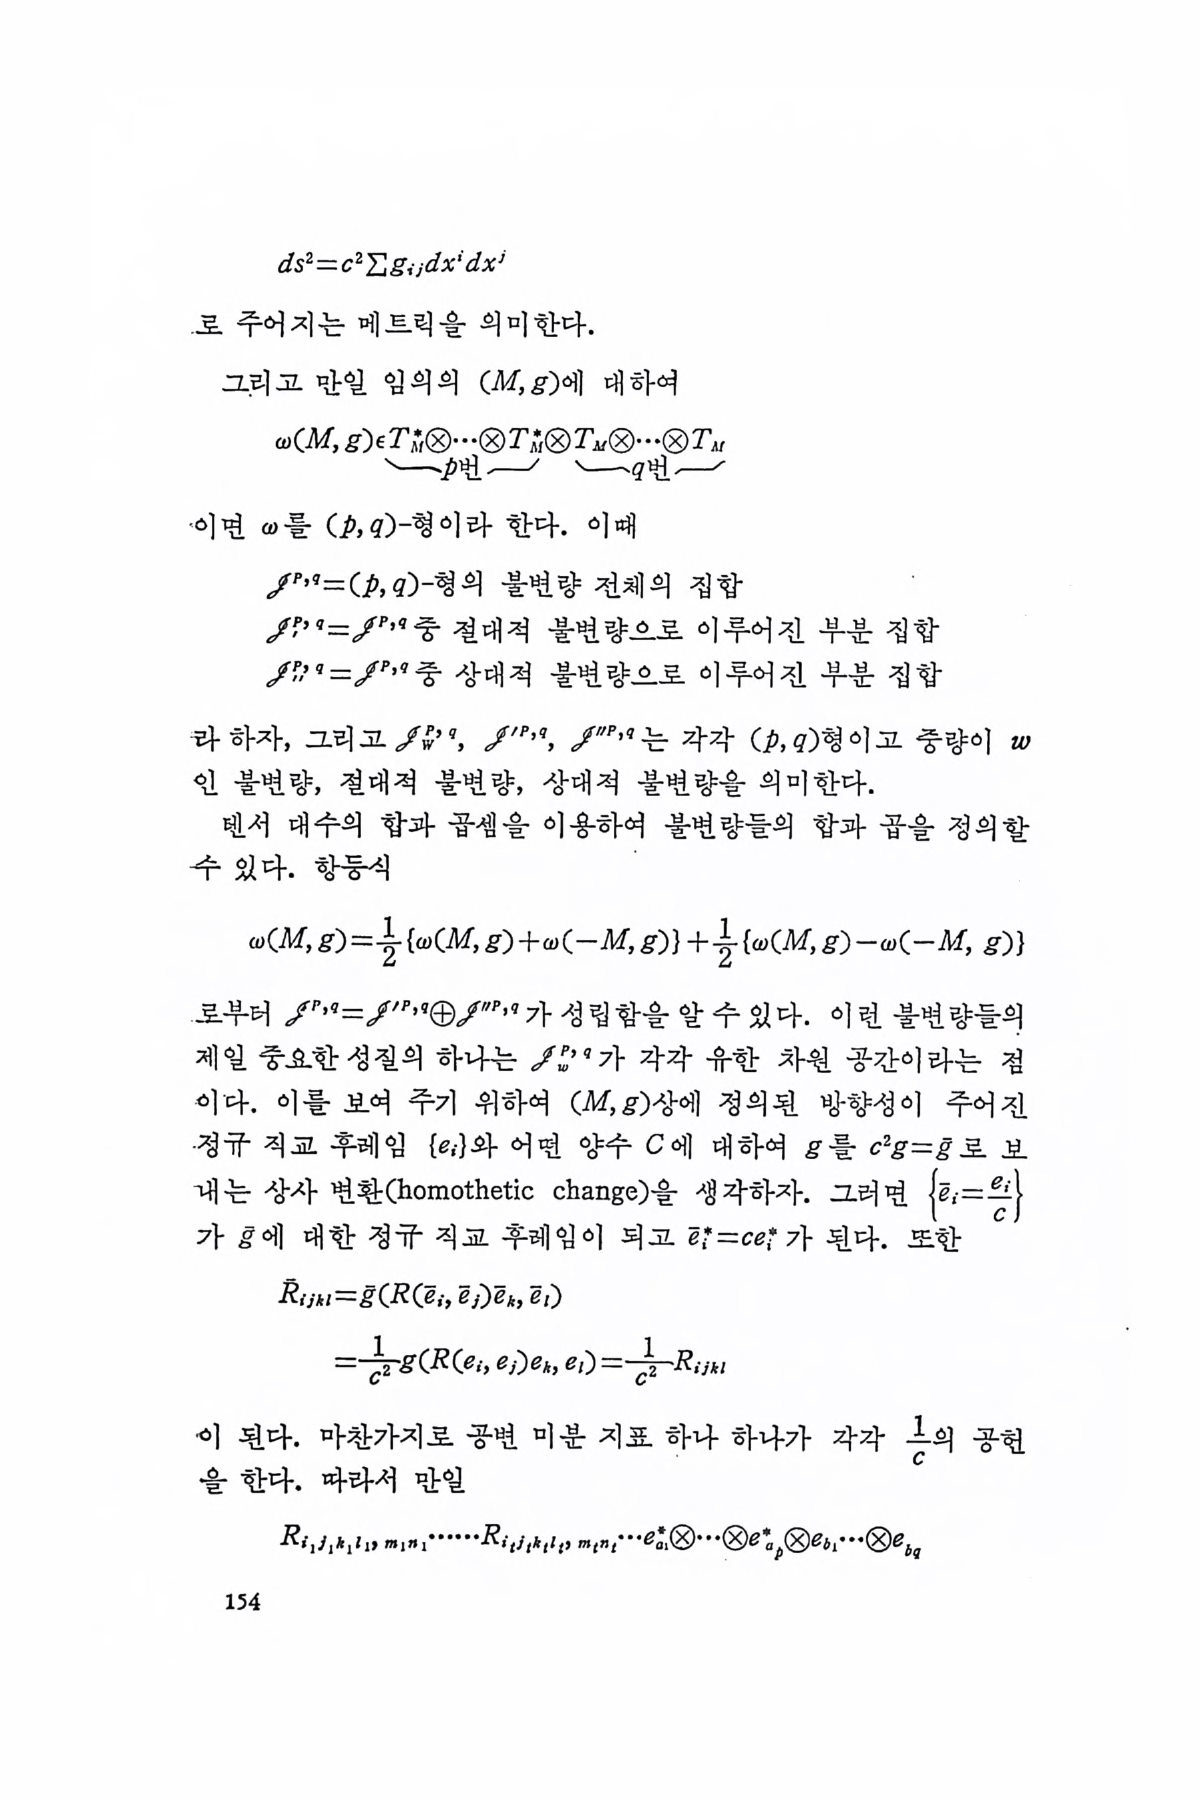 ds²=c²∑g_{ij}dx^i dx^j
로 주어지는 메트릭을 의미한다.
그리고 만일 임의의 (M, g)에 대하여
ω(M, g)ϵT_M^*⊗⋯⊗T_M^*⊗T_M⊗⋯⊗T_M
p번 q번
이면 ω를 (p, q)-형이라 한다. 이때
𝒥^{P,q}=(p, q)-형의 불변량 전체의 집합
𝒥_{′}^{P,q}=𝒥^{P,q}중 절대적 불변량으로 이루어진 부분 집합
𝒥_{″}^{P,q}=𝒥^{P,q}중 상대적 불변량으로 이루어진 부분 집합
라 하자, 그리고 𝒥_W^{P,q}, 𝒥′^{P,q}, 𝒥″^{P,q}는 각각 (p, q)형이고 중량이 w
인 불변량, 절대적 불변량, 상대적 불변량을 의미한다.
텐서 대수의 합과 곱셈을 이용하여 불변량들의 합과 곱을 정의할
수 있다. 항등식
ω(M, g)=\frac{1}{2}{ω(M, g)+ω(−M, g)}+\frac{1}{2}{ω(M, g)−ω(−M, g)}
로부터 𝒥^{P,q}=𝒥′^{P,q}⊕𝒥″^{P,q}가 성립함을 알 수 있다. 이런 불변량들의
제일 중요한 성질의 하나는 𝒥_w^{P,q}가 각각 유한 차원 공간이라는 점
이다. 이를 보여 주기 위하여 (M, g)상에 정의된 방향성이 주어진
정규 직교 후레임 {e_i}와 어떤 양수 C에 대하여 g를 c²g=ḡ로 보
내는 상사 변환(homothetic change)을 생각하자. 그러면 {ē_i=\frac{e_i}{c}}
가 ḡ에 대한 정규 직교 후레임이 되고 ē_i^*=ce_i^*가 된다. 또한
R̄_{ijkl}=ḡ(R(ē_i, ē_j)ē_k, ē_l)
=\frac{1}{c²}g(R(e_i, e_j)e_k, e_l)=\frac{1}{c²}R_{ijkl}
이 된다. 마찬가지로 공변 미분 지표 하나 하나가 각각 \frac{1}{c}의 공헌
을 한다. 따라서 만일
R_{i_1j_1k_1l_1, m_1n_1}⋯⋯R_{i_tj_tk_tl_t, m_tn_t}⋯e_{a_1}^*⊗⋯⊗e_{a_p}^*⊗e_{b_1}⋯⊗e_{b_q}
154